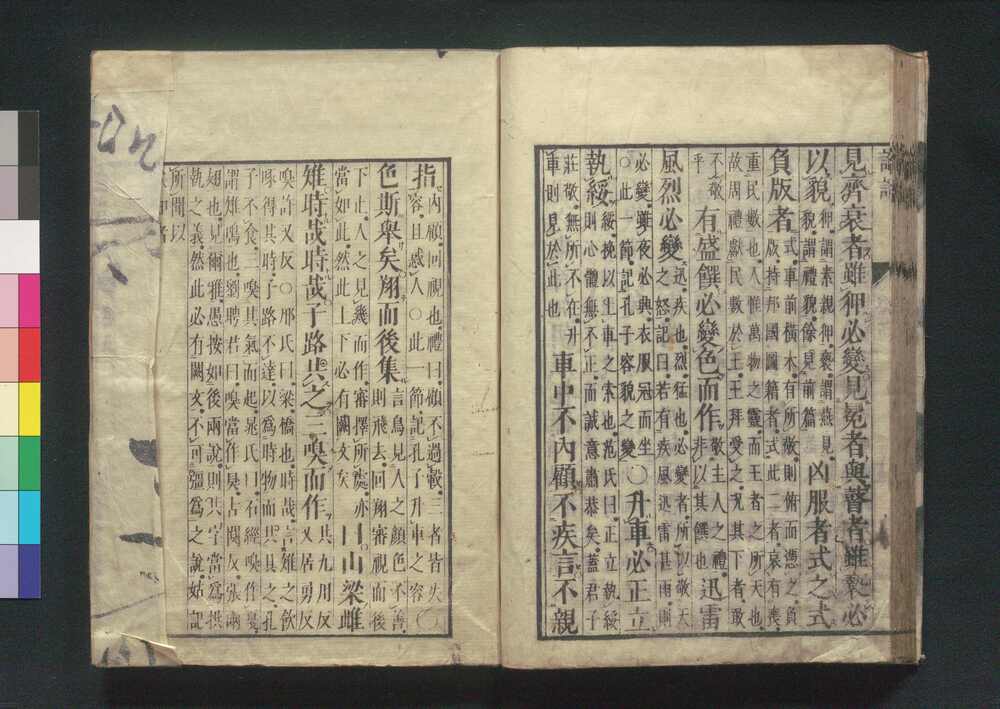 見齊衰者雖狎必變見冕者與瞽者雖褻必
以貌狎謂素親狎褻謂燕見
貌謂禮貌餘見前篇凶服者式之式
負版者式車前橫木有所敬則俯而憑之負
版持邦國圖籍者式此二者哀有喪
重民數也人惟萬物之靈而王者之所天也
故周禮獻民數於王王拜受之況其下者敢
不敬
乎有盛饌必變色而作敬主人之禮
非以其饌也迅雷
風烈必變迅疾也烈猛也必變者所以敬天
之怒記曰若有疾風迅雷甚雨則
必變雖夜必興衣服冠而坐
○此一節記孔子容貌之變○升車必正立
執綏綏挽以上車之索也范氏曰正立執綏
則心體無不正而誠意肅恭矣蓋君子
莊敬無所不在升
車則見於此也車中不內顧不疾言不親
指內顧回視也禮曰顧不過轂三者皆失
容且惑人○此一節記孔子升車之容○
色斯舉矣翔而後集言鳥見人之顏色不善
則飛去回翔審視而後
下止人之見幾而作審擇所處亦
當如此然此上下必有闕文矣曰山梁雌
雉時哉時哉子路共之三嗅而作共九用反
又居勇反
嗅許又反○邢氏曰梁橋也時哉言雉之飲
啄得其時子路不達以為時物而共具之孔
子不食三嗅其氣而起晁氏曰石經嗅作戛
謂雉鳴也劉聘君曰嗅當作狊古闃反張兩
翅也見爾雅愚按如後兩說則共字當為拱
執之義然此必有闕文不可彊為之說姑記
所聞以